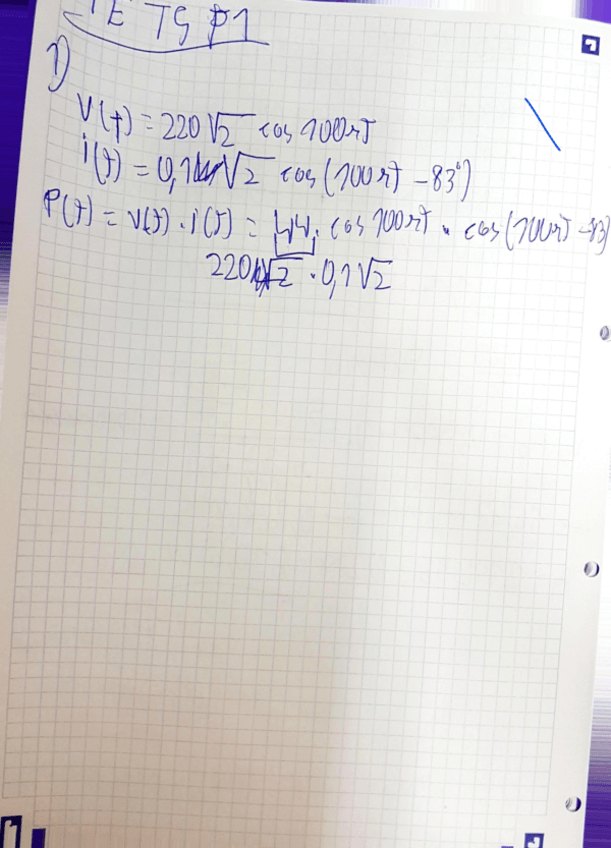 TE TG P1
1)
V(t) = 220 √2 cos 100πt
i(t) = 0,1 √2 cos (100πt – 83°)
P(t) = v(t) · i(t) = 44 · cos 100πt · cos (100πt – 83)
220 √2 · 0,1 √2